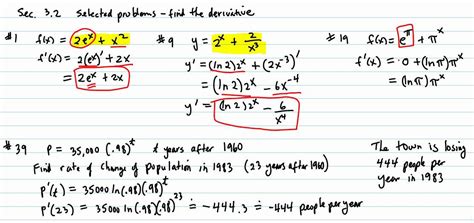 Sec. 3.2 Selected problems - find the derivative
#1 f(x) = 2eˣ + x²
f'(x) = 2(eˣ)' + 2x
= 2eˣ + 2x
#9 y = 2ˣ + 2/x³
y' = (ln 2)2ˣ + (2x⁻³)'
= (ln 2)2ˣ - 6x⁻⁴
y' = (ln 2)2ˣ - 6/x⁴
#19 f(x) = e^π + πˣ
f'(x) = 0 + (ln π)πˣ
= (ln π)πˣ
#39 P = 35,000 (.98)ᵗ t years after 1960
Find rate of change of population in 1983 (23 years after 1960)
P'(t) = 35000 ln(.98)(.98)ᵗ
P'(23) = 35000 ln(.98)(.98)²³ ≐ -444.3 ≐ -444 people per year
The town is losing
444 people per
year in 1983